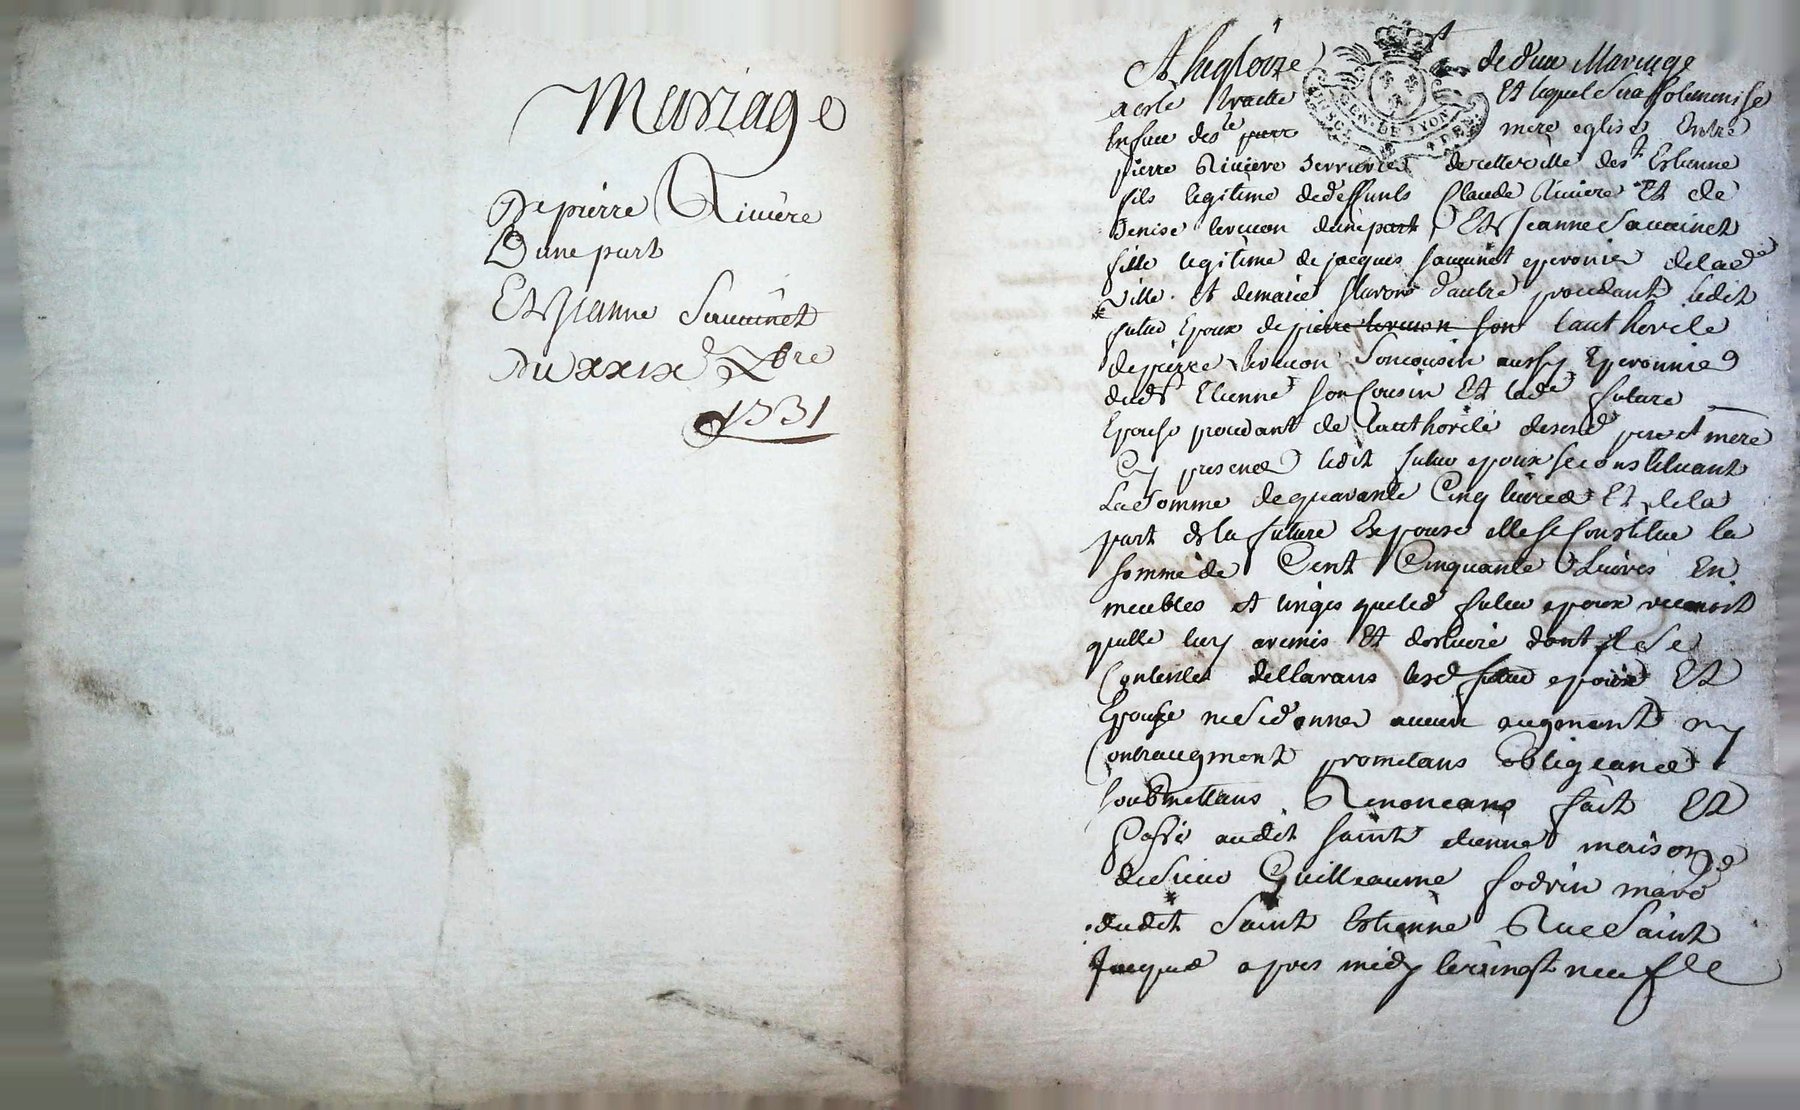 Mariage
De pierre Riviere
Dune part
Et Jeanne Sauuinet
Du xxix.e Xbre
1731
A la gloire de d un Mariage
a esté traitté Et lequel Sera Solemnisé
En face des.te mere eglise Entre
pierre Riviere Serrurier de cette ville de s.t Estienne
fils legitime de deffunts Claude Riviere Et de
Denise d'une part Et Jeanne Sauuinet
fille legitime de jacques Sauuinet eperonier de lad.e
ville. et de marie d'autre procedant ledit
futur Epoux de pierre son lauthorité
de pierre Son cousin aussy Eperonnier
dud.t Etienne son Cousin Et lad.e future
Epouse procedant de lauthorité de sesd. pere et mere
Cy presence ledit futur epoux se constituant
La Somme de quarante Cinq livres Et de la
part de la future Expouse elle se Constitue la
somme de Cent Cinquante Livres En
meubles et linges que led futur epoux reconoit
quelle luy a remis Et dont il Se
Contente dellarans lesd futur epoux Et
Epouse ne Se donner aucun augment ny
Contraugment prometans obligeance
soubmettans Renoncans fait Et
Passé audit saint etienne maison
de Sieur Guilleaume fodrin marc.d
dudit Saint Estienne Rue Saint
Jacque apres midy le vingt neuf le